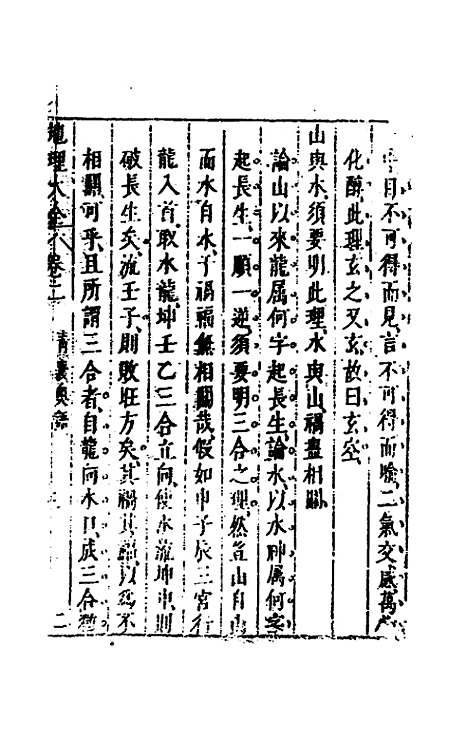 目不可得而見言不可得而喻二氣交感萬
化醇此理玄之又玄故曰玄空
山與水須要明此理水與山禍盡相關
論山以來龍属何字起長生論水以水神属何字
起長生一順一逆須要明三合之理然後山自山
而水自水子禍福無相關哉假如申子辰三宮行
龍入首取水龍坤壬乙三合立向使水流坤申則
破長生矣流壬子則敗旺方矣其禍其福以為不
相關可乎且所謂三合者自龍向水口成三合
地理大全卷之二 青囊奧語 二